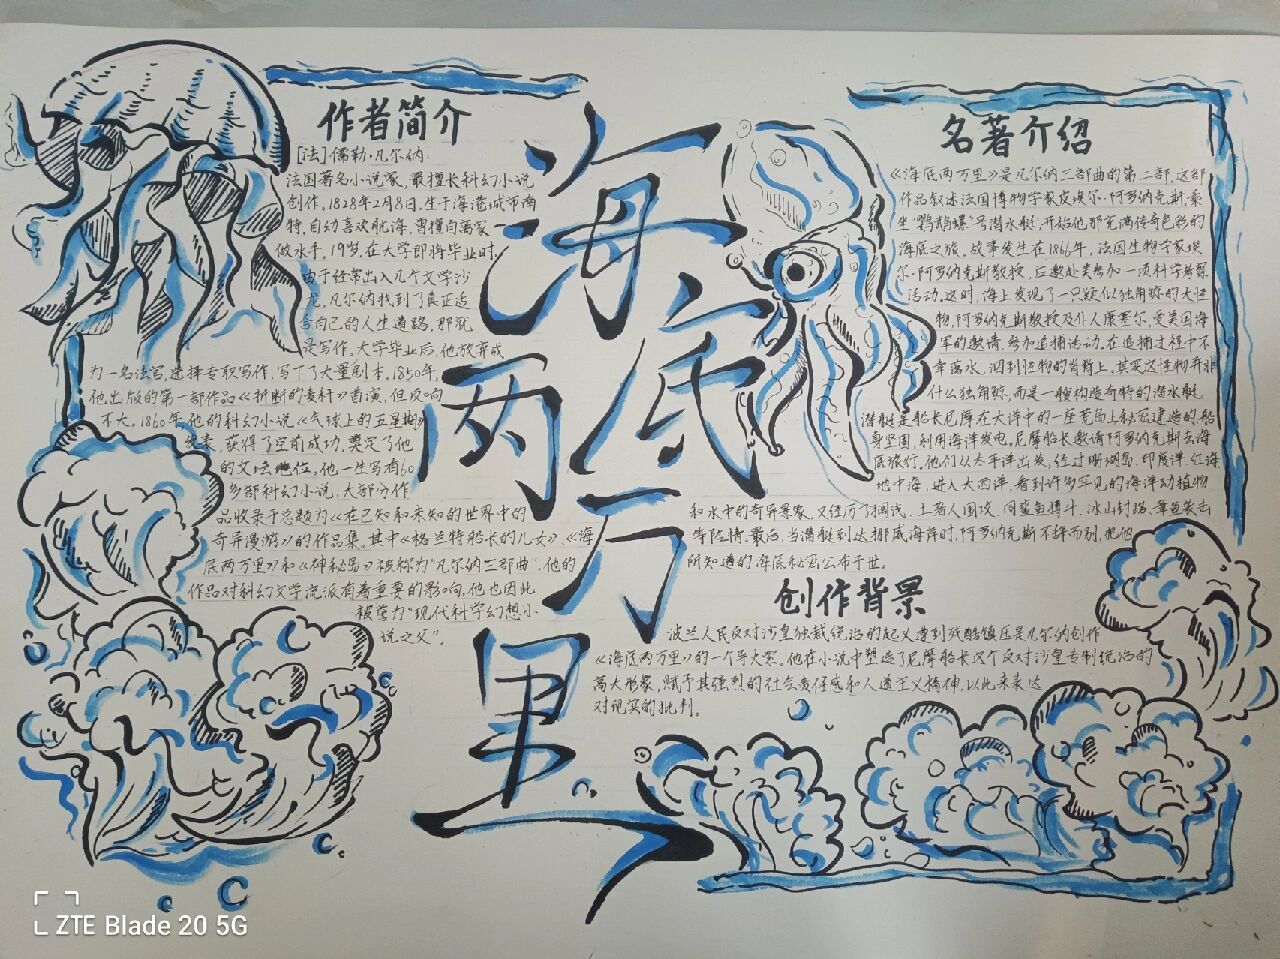 作者简介
[法]儒勒·凡尔纳
法国著名小说家,最擅长科幻小说
创作。1828年2月8日,生于海港城市南
特,自幼喜欢航海,曾擅自离家
做水手。19岁,在大学即将毕业时,
由于经常出入几个文学沙
龙,凡尔纳找到了真正适
合自己的人生道路,那就
是写作。大学毕业后,他放弃成
为一名法官,选择专职写作,写下了大量剧本。1850年,
他出版的第一部作品《折断的麦秆》首演,但反响
不大。1860年他的科幻小说《气球上的五星期》
发表,获得了空前成功,奠定了他
的文坛地位。他一生写有60
多部科幻小说,大部分作
品收录于总题为《在已知和未知的世界中的
奇异漫游》的作品集。其中《格兰特船长的儿女》、《海
底两万里》和《神秘岛》被称为"凡尔纳三部曲"。他的
作品对科幻文学流派有着重要的影响,他也因此
被誉为"现代科学幻想小
说之父"。
海底两万里
名著介绍
《海底两万里》是凡尔纳三部曲的第二部,这部
作品叙述法国博物学家皮埃尔·阿罗纳克斯,乘
坐"鹦鹉螺"号潜水艇,开始他那充满传奇色彩的
海底之旅。故事发生在1866年,法国生物学家埃
尔·阿罗纳克斯教授,应邀赴美参加一项科学考察
活动。这时,海上发现了一只疑似独角鲸的大怪
物,阿罗纳克斯教授及仆人康塞尔,受美国海
军的邀请,参加追捕活动。在追捕过程中不
幸落水,泅到怪物的脊背上,其实这怪物并非
什么独角鲸,而是一艘构造奇特的潜水艇。
潜艇是船长尼摩在大洋中的一座荒岛上秘密建造的,船
身坚固,利用海洋发电。尼摩船长邀请阿罗纳克斯去海
底旅行。他们从太平洋出发,经过珊瑚岛、印度洋、红海、
地中海,进入大西洋,看到许多罕见的海洋动植物
和水中的奇异景象,又经历了搁浅、土著人围攻、同鲨鱼搏斗、冰山封路、章鱼袭击
等险情。最后,当潜艇到达挪威海岸时,阿罗纳克斯不辞而别,把他
所知道的海底秘密公布于世。
创作背景
波兰人民反对沙皇独裁统治的起义遭到残酷镇压是凡尔纳创作
《海底两万里》的一个导火索。他在小说中塑造了尼摩船长这个反对沙皇专制统治的
高大形象,赋予其强烈的社会责任感和人道主义精神,以此来表达
对现实的批判。
ZTE Blade 20 5G